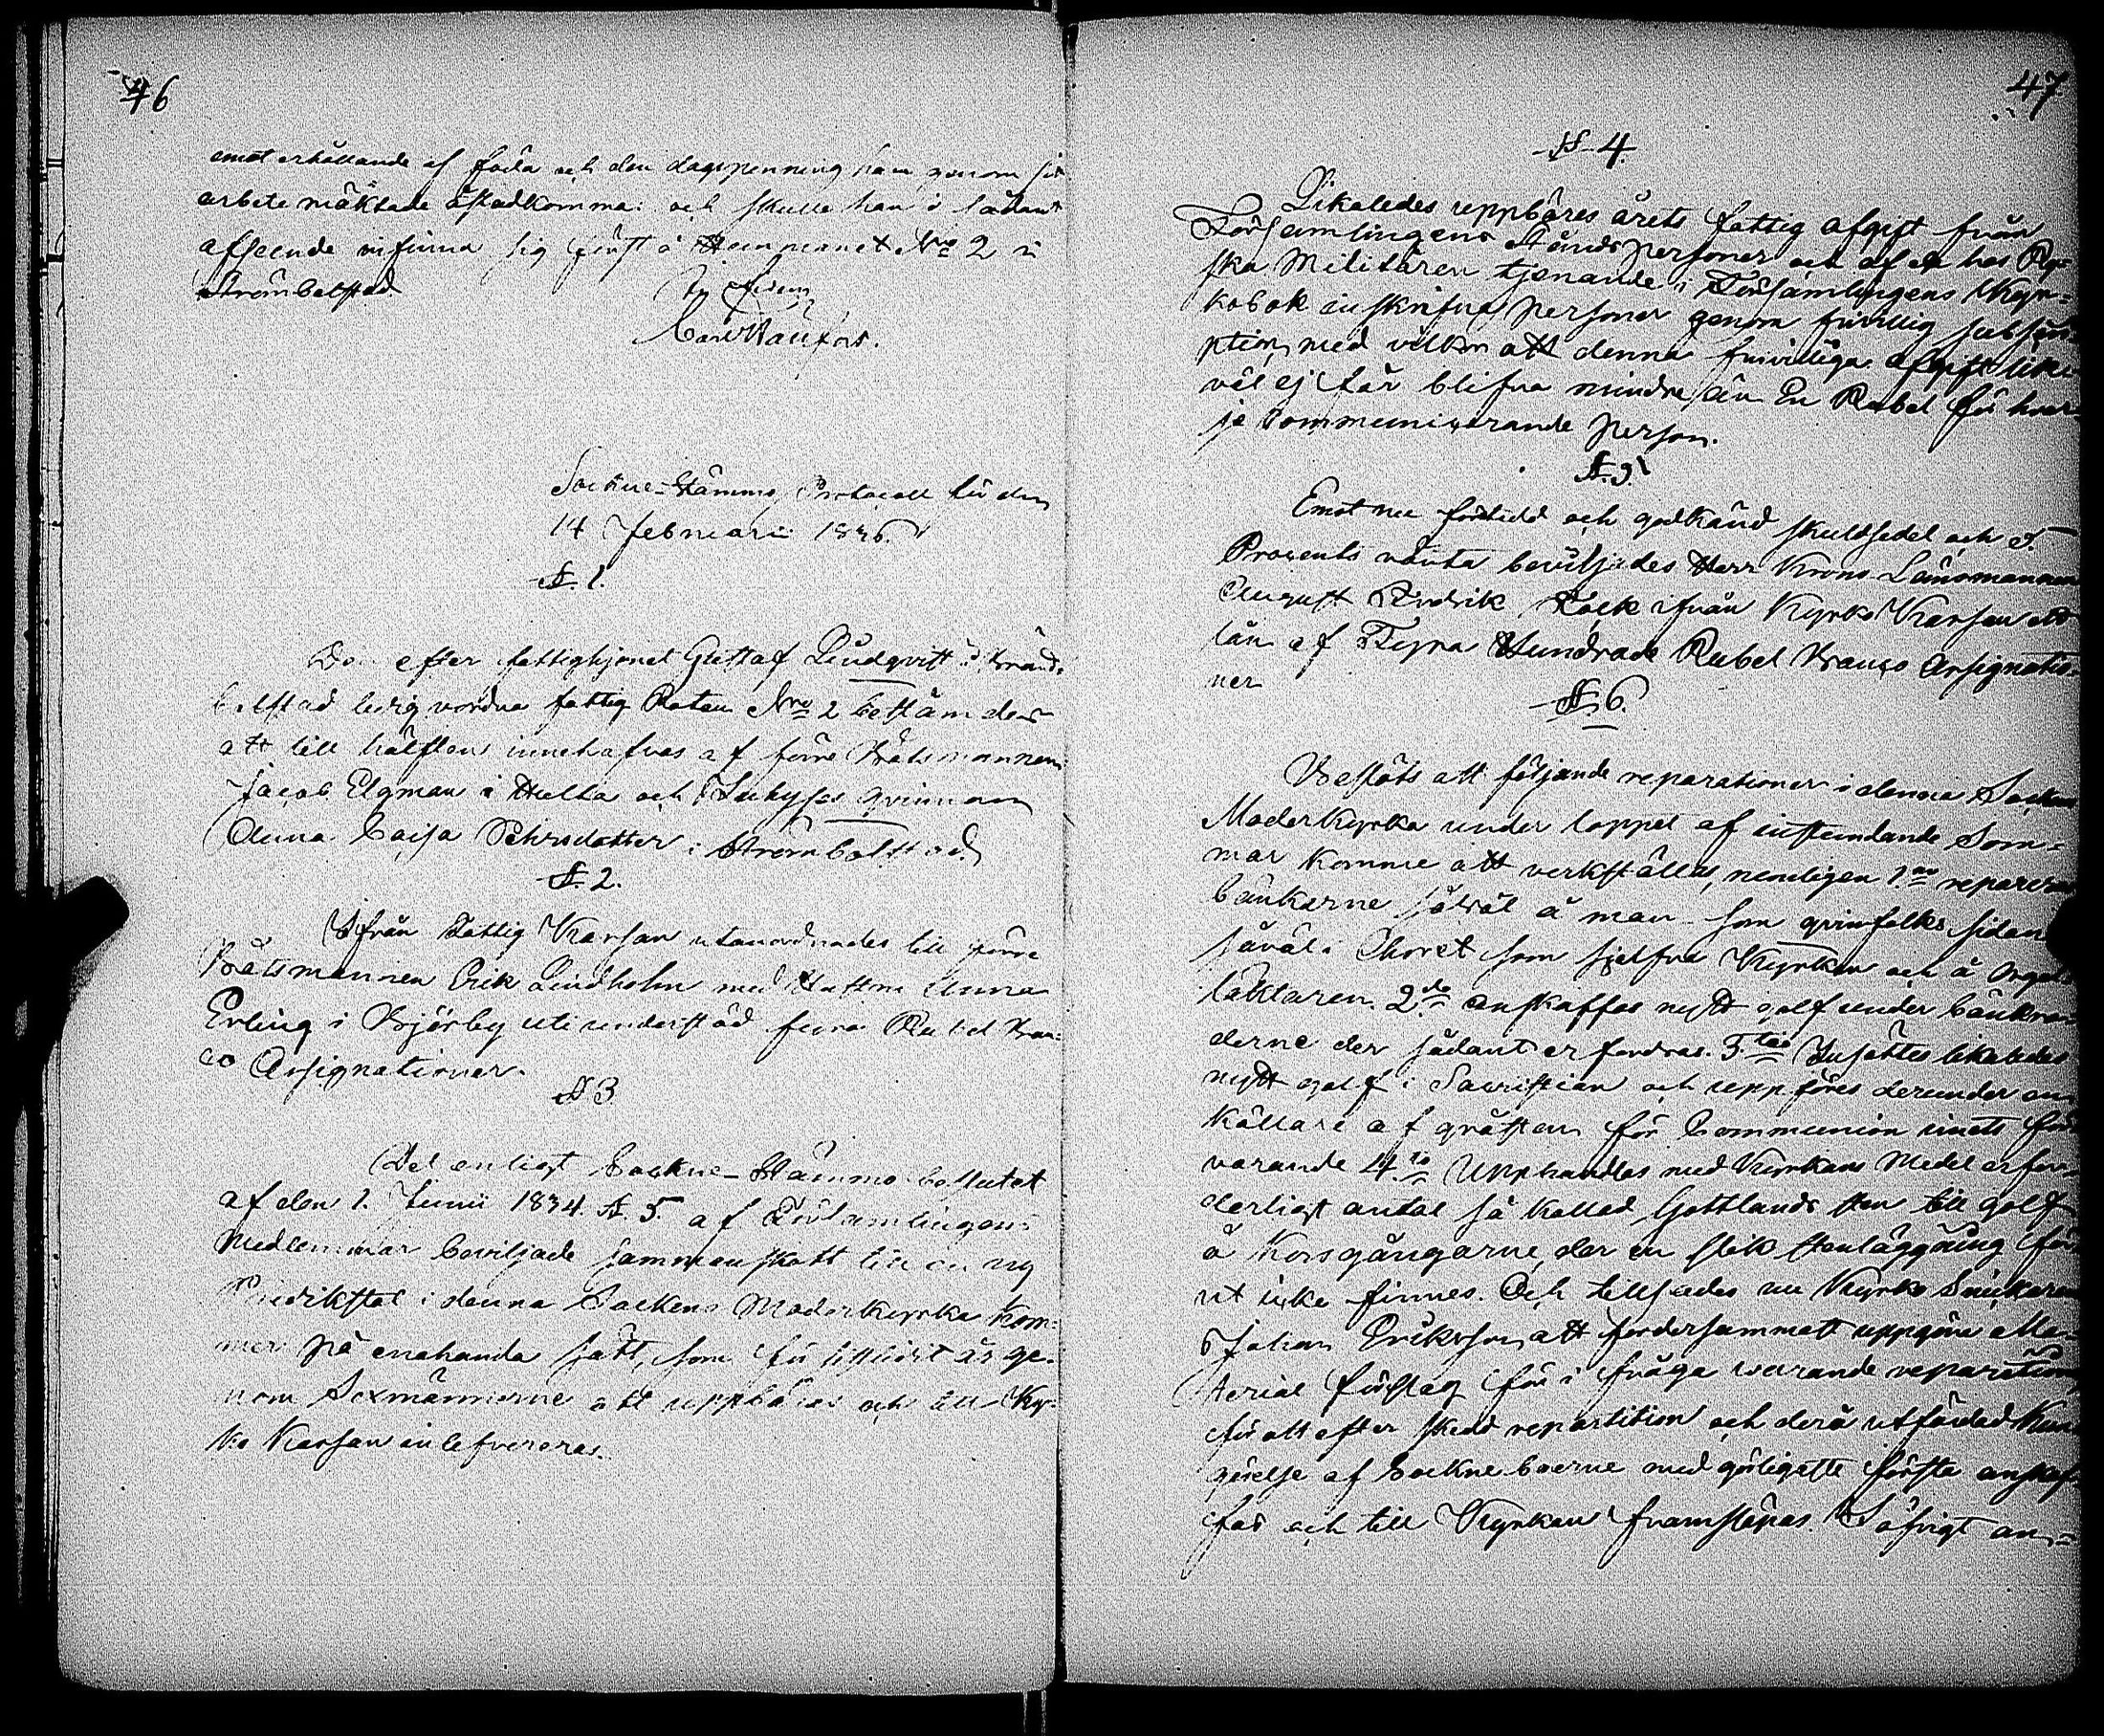 46
emot erhållande af föda och den dagspenning han genom sit
arbete mäktade åstadkomma: och skulle han i sådant
afseende infinna sig först å Hemmanet Nro 2 i
Strömbolstad.
In fidem
Carl Staufort.
Sockne-Stämmo Protocoll för den
14 Februarii 1836.
§. 1.
Den efter fattighjonet Gustaf Lindqvist i Ström-
bolstad ledig vordne fattig Roten Nro 2 bestämdes
att till hälften innehafvas af förre Båtsmannen
Jacob Elgman i Hulta och Inhyses qvinnan
Anna Caisa Pehrsdotter i Strömbolstad
§. 2.
Ifrån Fattig Kassan utanordnades till förre
Båtsmannen Erik Lindholm med Hustru Anna
Erling i Björby uti understöd fyra Rubel Ban-
co Assignationer.
§ 3
Det enligt Sockne-Stämmo beslutet
af den 1. Junii 1834. §. 5. af Församlingens
Medlemmar beviljade sammanskott till en ny
Predikstol i denna Sockens Moderkyrka kom-
mer på enahanda sätt, som för sistlidit år ge-
nom Sexmännerne att uppbäras och till Kyr-
ko Kassan inlefvereras.
47
§ 4.
Likaledes uppbäres årets fattig afgift från
Församlingens Stånds personer och af de hos Rys-
ska Militären tjenande i Församlingens Kyr-
kobok inskrifne personer genom frivillig subscri-
ption, med vilkor att denna frivilliga afgift like-
väl ej får blifva mindre än En Rubel för hvar-
je communicerande person.
§. 5
Emot nu företedd och godkänd skuldsedel och 5.
Procents ränta beviljades Herr Krono Länsmannen
August Fredrik Fock ifrån Kyrko Kassan ett
lån af Fyra Hundrade Rubel Banco Assignatio-
ner
§. 6.
Beslöts att följande reparationer i denna Sockens
Moderkyrka under loppet af instundande Som-
mar komme att verkställas, nemligen 1.mo repareras
bänkarne såväl å man- som qvinfolks sidan
såväl i Choret som sjelfva Kyrkan och å Orgel-
läktaren. 2do anskaffas nytt golf under bänkra-
derne der sådant erfordras. 3.tio Insättes likaledes
nytt golf i Sacristian och uppföres derunder en
källare af gråsten för Communion vinets för-
varande 4.to Upphandlas med Kyrkans Medel erfor-
derligt antal så kallad Gottlands sten till golf
å Korsgångarne, der en slik stenläggning för-
ut icke finnes. Och tillsades nu Kyrko Snickaren
Johan Eriksson att fordersammast uppgöra Ma-
terial förslag för i fråga varande reparation,
för att efter skedd repartition och derå utfärdad Kun-
görelse af Sockneboerne med görligaste första anskaf-
fas och till Kyrkan framsläpas. I öfrigt an-